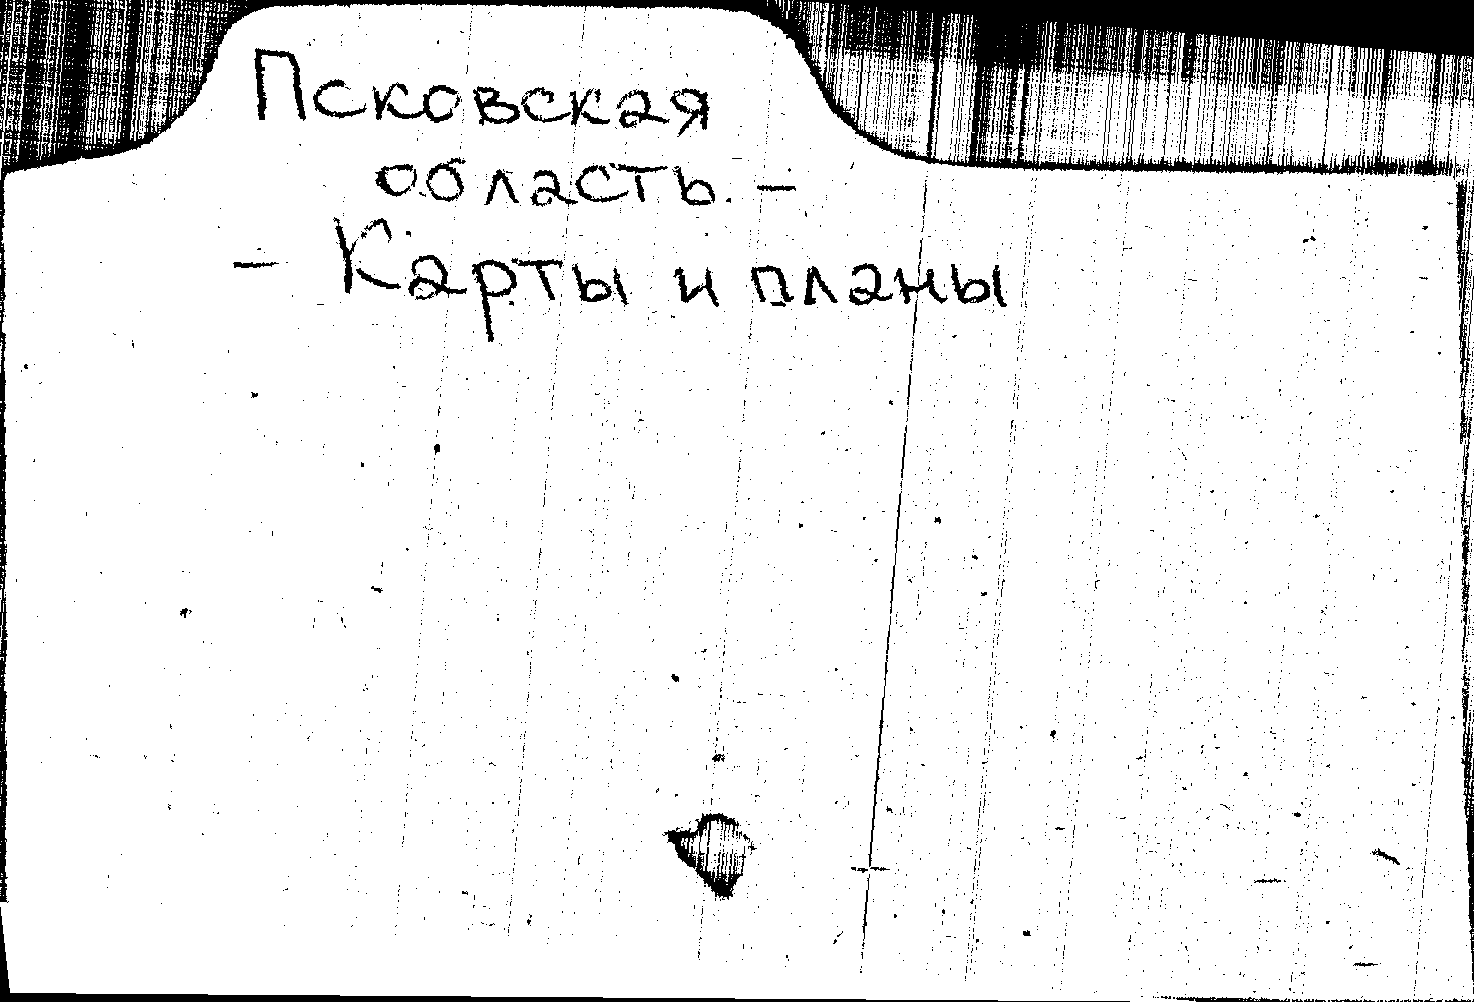 Псковская
область. –
– Карты и планы